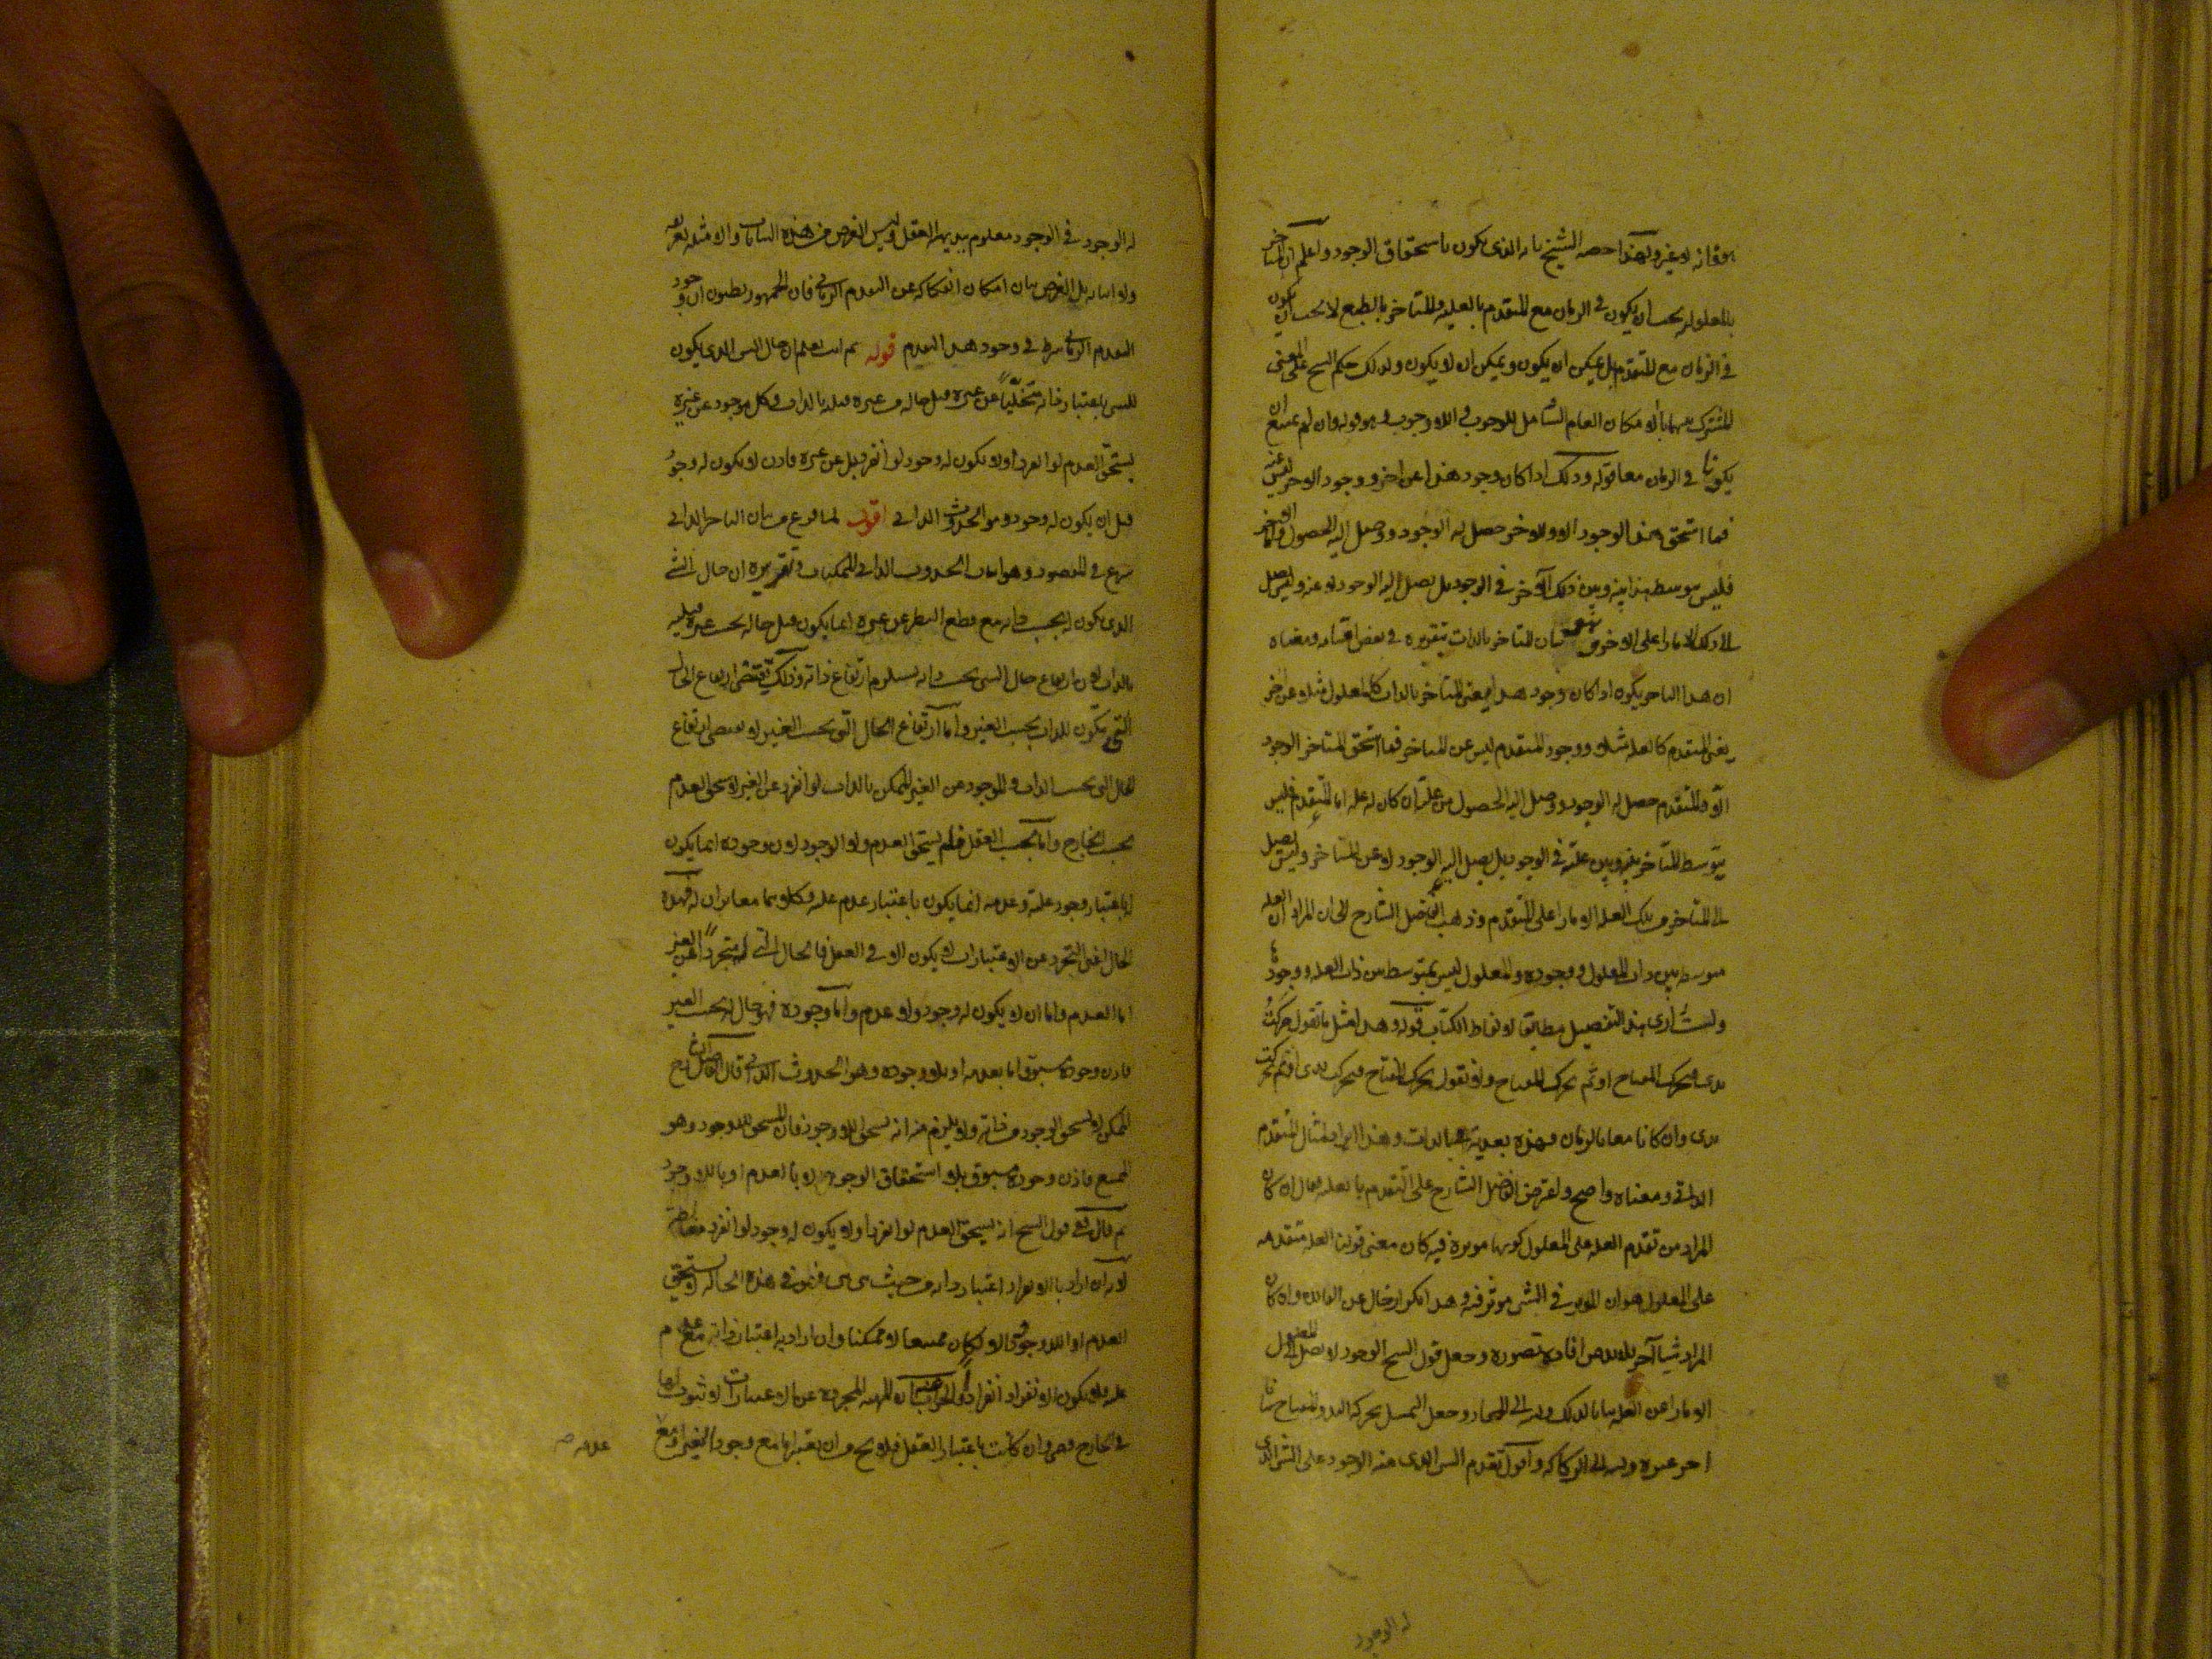 هو فانه لا غير ولهذا خصه الشيخ بانه الذي يكون باستحقاق الوجود واعلم ان المتاخر
بالمعلوليه يجب ان يكون في الزمان مع المتقدم بالعليه والمتاخر بالطبع لا يجب ان يكون
في الزمان مع المتقدم بل يمكن ان يكون ويمكن ان لا يكون ولذلك حكم الشيخ على المعنى
المشترك بينهما بالامكان العام الشامل للوجوب واللاوجوب وهو قوله وان لم يمتنع ان
يكونا في الزمان معا قوله وذلك اذا كان وجود هذا عن اخر ووجود الاخر ليس عنه
فما استحق هذا الوجود الا والاخر حصل له الوجود ووصل اليه الحصول واما الاخر
فليس يتوسط هذا بينه وبين ذلك الآخر في الوجود بل يصل اليه الوجود لا عنه وليس يصل
الى ذلك الا مارا على الاخر بيان المتاخر بالذات بتقريره في بعض اقسامه ومعناه
ان هذا التاخر يكون اذا كان وجود هذا يعني المتاخر بالذات كالمعلول مثلا عن اخر
يعني المتقدم كالعله مثلا ووجود المتقدم ليس عن المتاخر فما استحق المتاخر الوجود
الا والمتقدم حصل له الوجود ووصل اليه الحصول من علته ان كان له عله اما المتقدم فليس
يتوسط المتاخر بينه وبين علته في الوجود بل يصل اليه الوجود لا عن المتاخر وليس يصل
الى المتاخر من تلك العله الا مارا على المتقدم وذهب الفاضل الشارح الى ان المراد ان العله
متوسطه بين ذات المعلول ووجوده والمعلول ليس بمتوسط بين ذات العله ووجودها
ولست ارى هذا التفصيل مطابقا لالفاظ الكتاب قوله وهذا مثل ما تقول حركت
يدي فتحرك المفتاح او ثم تحرك المفتاح ولا تقول تحرك المفتاح فتحركت يدي او ثم تحركت
يدي وان كانا معا بالزمان فهذه بعدية بالذات وهذا ايراد المثال للتقدم
الذاتي ومعناه واضح واعترض الفاضل الشارح على التقدم بالعله فقال ان كان
المراد من تقدم العله على المعلول كونها موثره فيه كان معنى قولنا العله متقدمه
على المعلول هو ان الموثر في الشي موثر فيه وهذا تكرار خال عن الفايده وان كان
المراد شيئا آخر فلا بد من افادة تصوره وجعل قول الشيخ الوجود لا يصل الى المعلول
الا مارا عن العله بيانا لذلك ونسبه الى المجاز وجعل التمثيل بحركه اليد والمفتاح بيانا
اخر غيره ونسبه الى الركاكه واقول تقدم الشي الذي منه الوجود على الشي الذي
له الوجود
له الوجود في الوجود معلوم ببديهة العقل وليس الغرض من هذه البيانات والامثله تعريفه
ولا اثباته بل الغرض بيان امكان انفكاكه عن التقدم الزماني فان الجمهور يظنون ان وجود
التقدم الزماني شرط في وجود هذا التقدم قوله ثم انت تعلم ان حال الشي الذي يكون
للشي باعتبار ذاته متخليا عن غيره قبل حاله من غيره قبليه بالذات وكل موجود عن غيره
يستحق العدم لو انفرد او لا يكون له وجود لو انفرد بل عن غيره فاذن لا يكون له وجود
قبل ان يكون له وجود وهو الحدوث الذاتي اقول لما فرغ من بيان التاخر الذاتي
شرع في المقصود وهو اثبات الحدوث الذاتي للممكنات وتقريره ان حال الشي
الذي يكون له بحسب ذاته مع قطع النظر عن غيره انما يكون قبل حاله بحسب غيره قبليه
بالذات لان ارتفاع حال الشي بحسب ذاته يستلزم ارتفاع ذاته وذلك يقتضي ارتفاع الحال
التي تكون للذات بحسب الغير واما ارتفاع الحال التي بحسب الغير لا يقتضي ارتفاع
الحال التي بحسب الذات والموجود عن الغير الممكن بالذات لو انفرد عن الغير لاستحق العدم
بحسب الخارج واما بحسب العقل فلم يستحق العدم ولا الوجود لان وجوده انما يكون
له باعتبار وجود علته وعدمه انما يكون باعتبار عدم علته وكلاهما مغايران له فهذه
الحال اعني التجرد عن الاعتبارات لا يكون الا في العقل فالحال التي له متجردا عن الغير
اما العدم واما ان لا يكون له وجود ولا عدم واما وجوده فهو حال له بحسب الغير
فاذن وجوده مسبوق اما بعدمه او بلا وجوده وهو الحدوث الذاتي قال الفاضل الشارح
الممكن لا يستحق الوجود من ذاته ولا يلزم منه انه يستحق اللاوجود فان المستحق للاوجود هو
الممتنع فاذن وجوده مسبوق بلا استحقاق الوجود لا بالعدم او باللاوجود
ثم قال في قول الشيخ انه يستحق العدم لو انفرد او لا يكون له وجود لو انفرد مغالطة
لانه ان اراد بالانفراد اعتبار ذاته من حيث هي هي فهو في هذه الحاله لا يستحق
العدم او اللاوجود والا لكان ممتنعا لا ممكنا وان اراد به اعتبار ذاته مع عدم
علته فلا يكون الانفراد انفرادا والجواب عنه ان المهيه المجرده عن الاعتبارات لا ثبوت لها
في الخارج فهي وان كانت باعتبار العقل فلا يخ من ان يعتبرها مع وجود الغير او مع